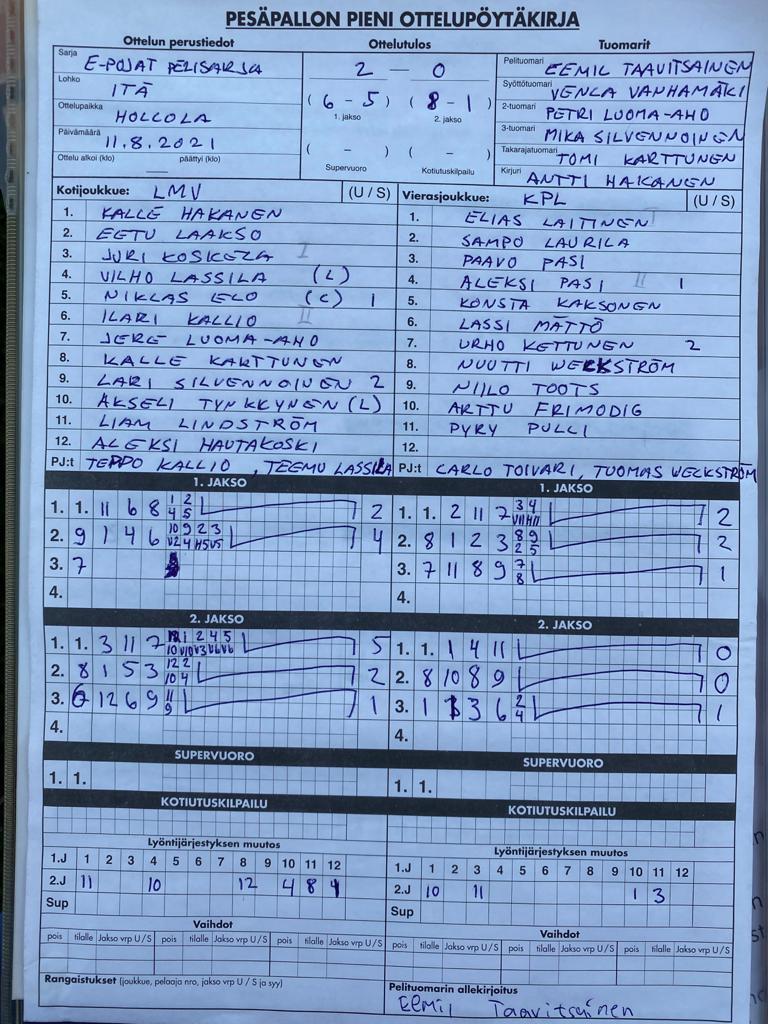 PESÄPALLON PIENI OTTELUPÖYTÄKIRJA
Ottelun perustiedot Ottelutulos Tuomarit
Sarja E-POJAT PELISARJA
Lohko ITÄ
Ottelupaikka HOLLOLA
Päivämäärä 11.8.2021
Ottelu alkoi (klo) päättyi (klo)
2 — 0
( 6 - 5 ) ( 8 - 1 )
1. jakso 2. jakso
( - ) ( - )
Supervuoro Kotiutuskilpailu
Pelituomari EEMIL TAAVITSAINEN
Syöttötuomari VENLA VANHAMÄKI
2-tuomari PETRI LUOMA-AHO
3-tuomari MIKA SILVENNOINEN
Takarajatuomari TOMI KARTTUNEN
Kirjuri ANTTI HAKANEN
Kotijoukkue: LMV (U / S)
1. KALLE HAKANEN
2. EETU LAAKSO
3. JURI KOSKELA I
4. VILHO LASSILA (L)
5. NIKLAS ELO (C) 1
6. ILARI KALLIO II
7. JERE LUOMA-AHO
8. KALLE KARTTUNEN
9. LARI SILVENNOINEN 2
10. AKSELI TYNKKYNEN (L)
11. LIAM LINDSTRÖM
12. ALEKSI HAUTAKOSKI
PJ:t TEPPO KALLIO, TEEMU LASSILA
Vierasjoukkue: KPL (U / S)
1. ELIAS LAITINEN I
2. SAMPO LAURILA
3. PAAVO PASI
4. ALEKSI PASI II 1
5. KONSTA KAKSONEN
6. LASSI MÄTTÖ
7. URHO KETTUNEN 2
8. NUUTTI WECKSTRÖM
9. NIILO TOOTS
10. ARTTU FRIMODIG
11. PYRY PULLI
12.
PJ:t CARLO TOIVARI, TUOMAS WECKSTRÖM
1. JAKSO
1. 1. 11 6 8 1 2 2
4 5
2. 9 1 4 6 10 9 2 3 4
V2 4 H5 V5
3. 7
4.
1. JAKSO
1. 1. 2 11 7 3 4 2
VII HII
2. 8 1 2 3 8 9 2
2 5
3. 7 11 8 9 7 1
8
4.
2. JAKSO
1. 1. 3 11 7 1 2 4 5 5
10 V10 V3 V6 V6
2. 8 1 5 3 12 2 2
10 4
3. 6 12 6 9 11 1
9
4.
2. JAKSO
1. 1. 1 4 11 0
2. 8 10 8 9 0
3. 1 3 6 2 1
4
4.
SUPERVUORO
1. 1.
SUPERVUORO
1. 1.
KOTIUTUSKILPAILU
KOTIUTUSKILPAILU
Lyöntijärjestyksen muutos
1.J 1 2 3 4 5 6 7 8 9 10 11 12
2.J 11 10 12 4 8 1
Sup
Lyöntijärjestyksen muutos
1.J 1 2 3 4 5 6 7 8 9 10 11 12
2.J 10 11 1 3
Sup
Vaihdot
pois tilalle Jakso vrp U / S pois tilalle Jakso vrp U / S pois tilalle Jakso vrp U / S
Vaihdot
pois tilalle Jakso vrp U / S pois tilalle Jakso vrp U / S pois tilalle Jakso vrp U / S
Rangaistukset (joukkue, pelaaja nro, jakso vrp U / S ja syy)
Pelituomarin allekirjoitus
Eemil Taavitsainen